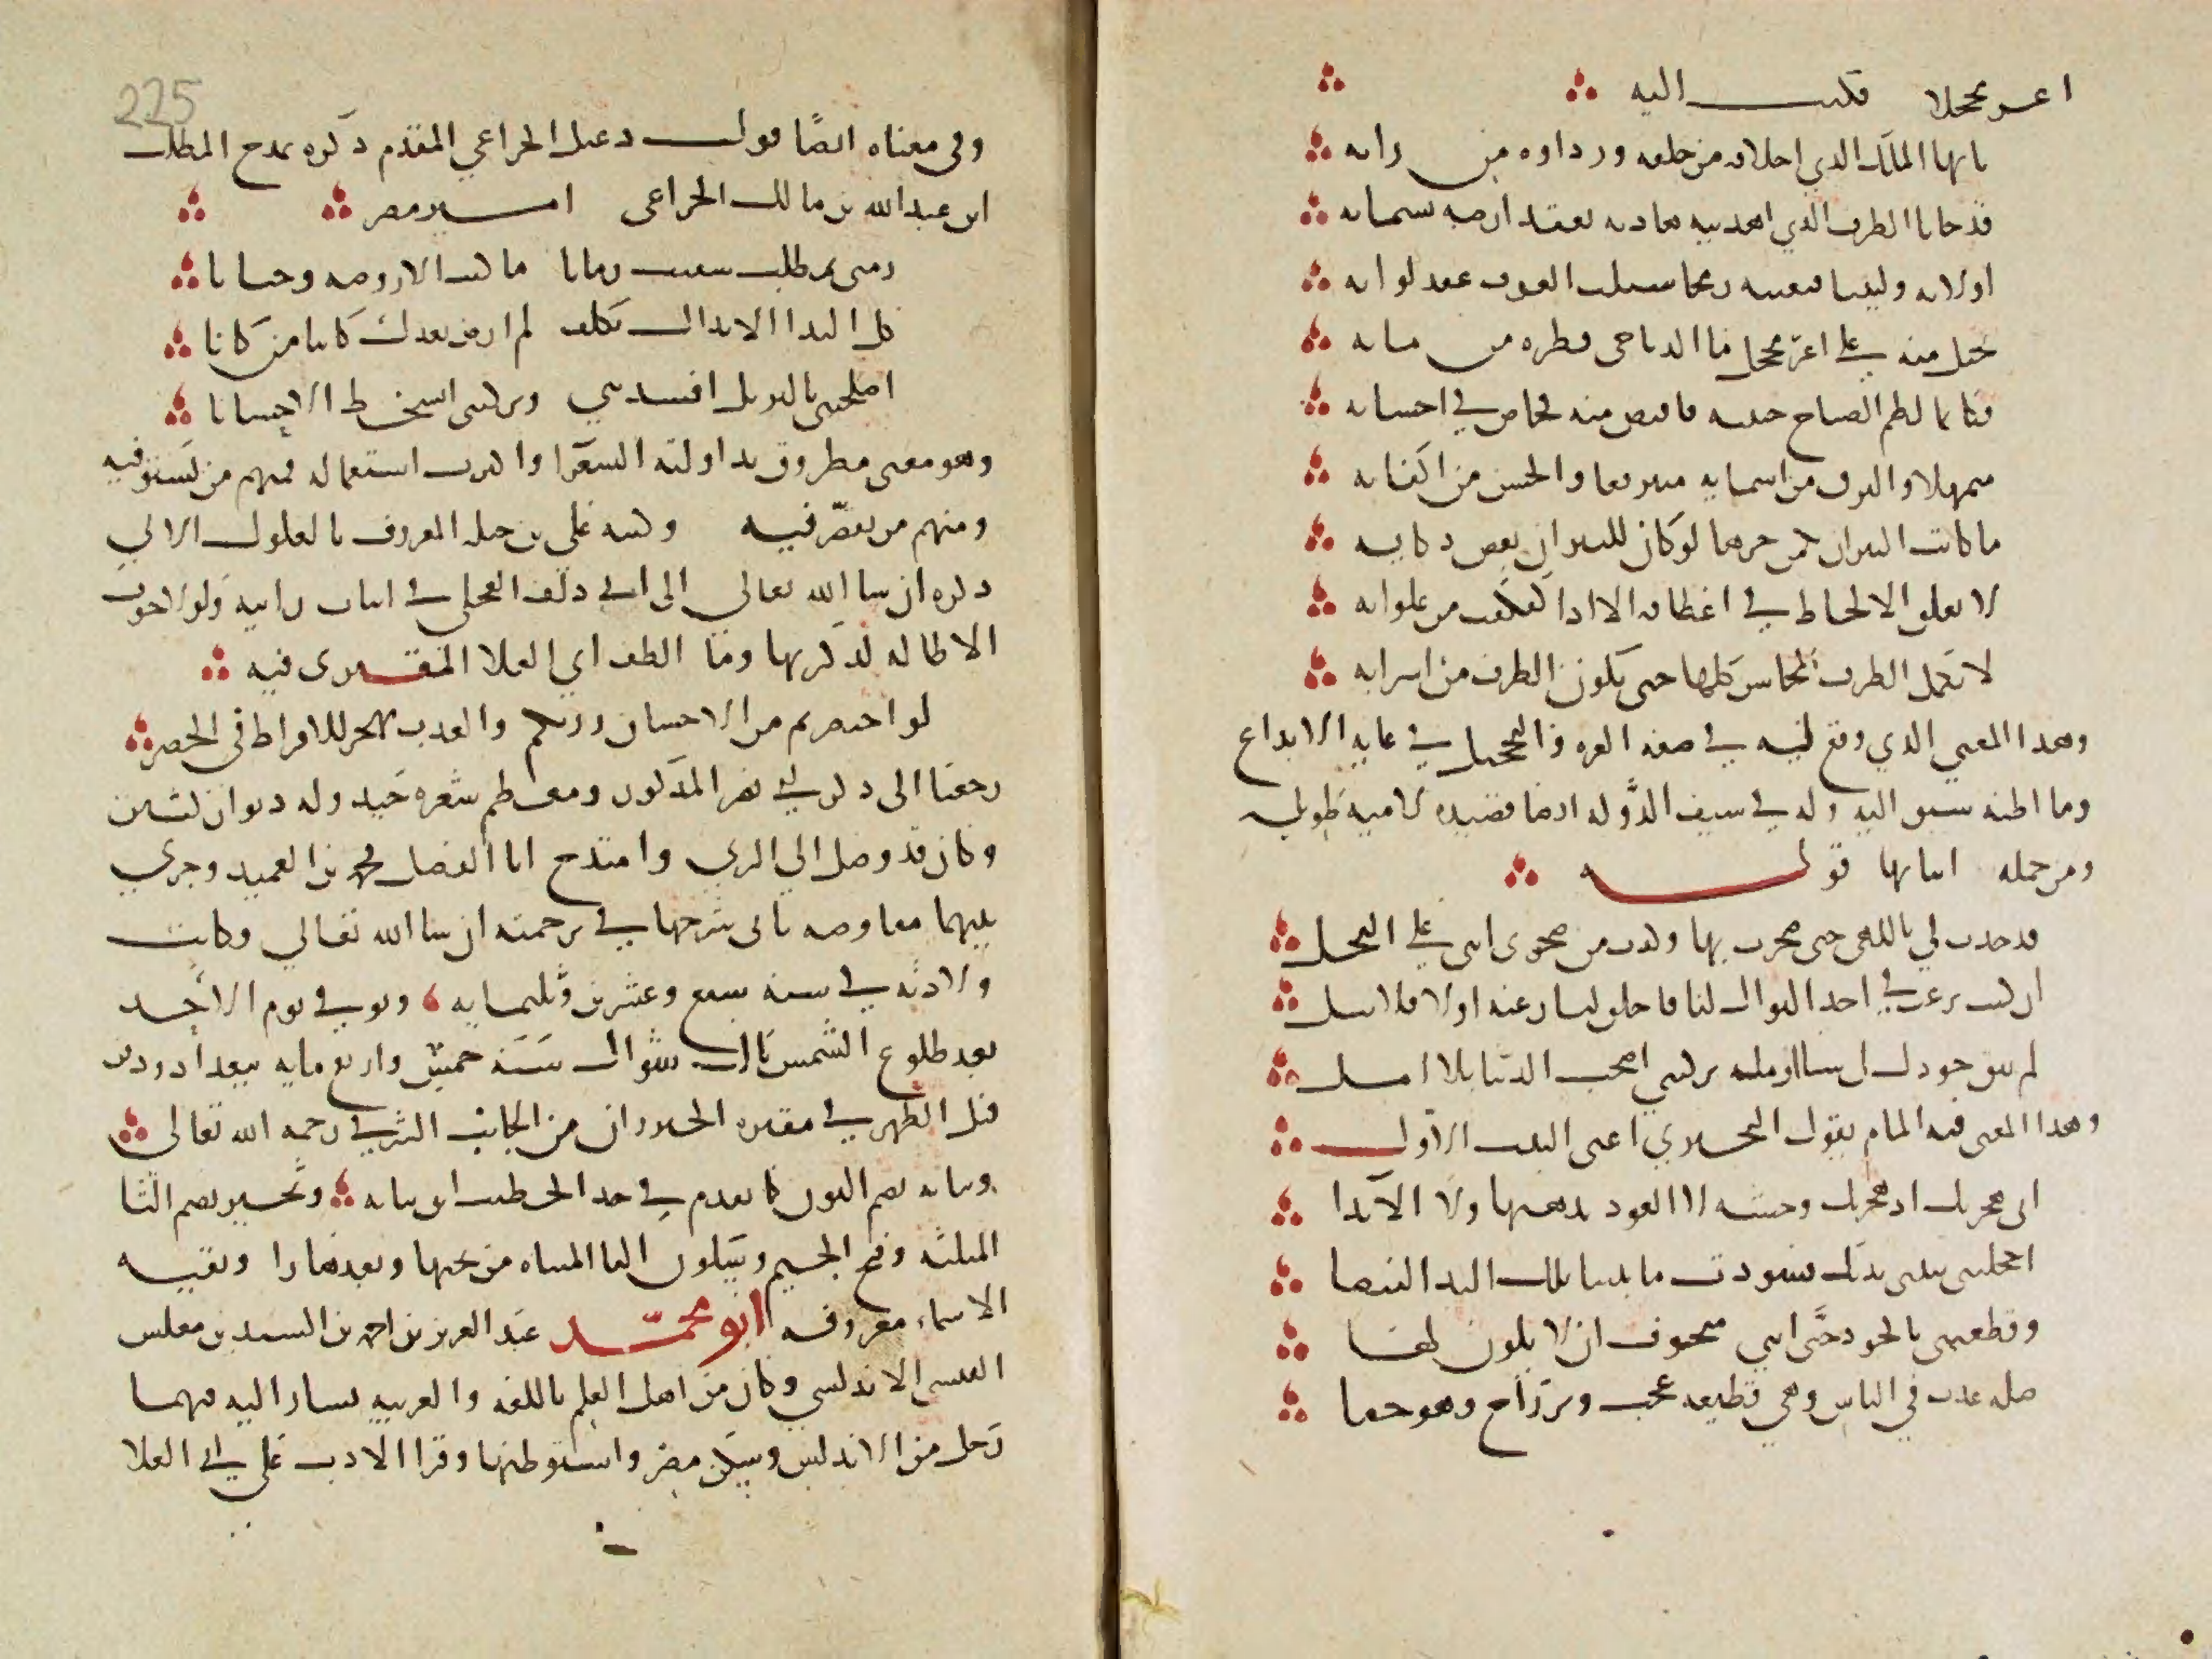 اغر محجلا فكتب اليه
يا ايها الملك الذي اخلاقه من خلقه ورداوه من رايه
قد جانا الطرف الذي اهديته هاديه يعقد ارضه بسمايه
اولايه وليتنا فبعثته رمحا سبيب العرف عقد لوايه
نختل منه على اغر محجل ما الدياجي قطره من مايه
فكانما لطم الصباح جبينه فاقتص منه فخاض في احشايه
متمهلا والبرق من اسمايه متبرقعا والحسن من اكفايه
ما كانت النيران يكمن حرها لو كان للنيران بعض ذكايه
لا تعلق الالحاظ في اعطافه الا اذا كفكفت من غلوايه
لا تكمل الطرف المحاسن كلها حتى يكون الطرف من اسرايه
وهذا المعنى الذي وقع له فيه في صفه الغره والتحجيل في غايه الابداع
وما اظنه سبق اليه وله في سيف الدوله ايضا قصيده لاميه طويله
ومن جمله ابياتها قوله
قد جدت لي باللهى حتى ضجرت بها وكدت من ضجري اثني على البخل
ان كنت ترغب في اخذ النوال لنا فاخلق لنا رغبه اولا فلا تنل
لم يبق جودك لي شيا اومله تركتني اصحب الدنيا بلا امل
وهذا المعنى فيه المام بقول البحتري اعني البيت الاول
اني هجرتك اذ هجرتك وحشه لا العود يذهبها ولا الابدا
اخجلتني بندى يديك فسودت ما بيننا تلك اليد البيضا
وقطعتني بالجود حتى انني متخوف ان لا يكون لقا
صله غدت في الناس وهي قطيعه عجب وبر راح وهو جفا
225
وفي معناه ايضا قول دعبل الخزاعي المقدم ذكره يمدح المطلب
ابن عبد الله بن مالك الخزاعي امير مصر
زمني بمطلب سقيت زمانا ما كنت الا روضه وجنانا
كل الندا الا نداك تكلف لم ارض بعدك كاينا من كانا
اصلحتني بالبر بل افسدتني وتركتني اتسخط الاحسانا
وهو معنى مطروق تداولته الشعرا واكثرت استعماله فمنهم من يستوفيه
ومنهم من يقصر فيه وكتبه علي بن جبله المعروف بالعكوك الاتي
ذكره ان شا الله تعالى الى ابي دلف العجلي في ابيات رائيه ولولا خوف
الاطاله لذكرتها وما الطف ابي العلا المعري فيه
لو اختصرتم من الاحسان زرتكم والعذب يهجر للافراط في الخصر
رجعنا الى ذكر ابي نصر المذكور ومعظم شعره جيد وله ديوان كبير
وكان قد وصل الي الري وامتدح ابا الفضل محمد بن العميد وجرى
بينهما مفاوضه ياتي شرحها في ترجمته ان شا الله تعالي وكانت
ولادته في سنه سبع وعشرين وثلثمايه وتوفي يوم الاحد
بعد طلوع الشمس ثالث شوال سنه خمس واربع مايه ببغداد ودفن
قبل الظهر في مقبره الخيزران من الجانب الشرقي رحمه الله تعالى
ونباته بضم النون كما تقدم في جد الخطيب ابن نباته وثجير بضم الثا
المثلثه وفتح الجيم وسكون اليا المثناه من تحتها وبعدها را وبقيه
الاسماء معروفه ابو محمد عبد العزيز بن احمد بن السيد بن مغلس
القيسي الاندلسي وكان من اهل العلم باللغه والعربيه مشارا اليه فيهما
رحل من الاندلس وسكن مصر واستوطنها وقرا الادب على ابي العلا